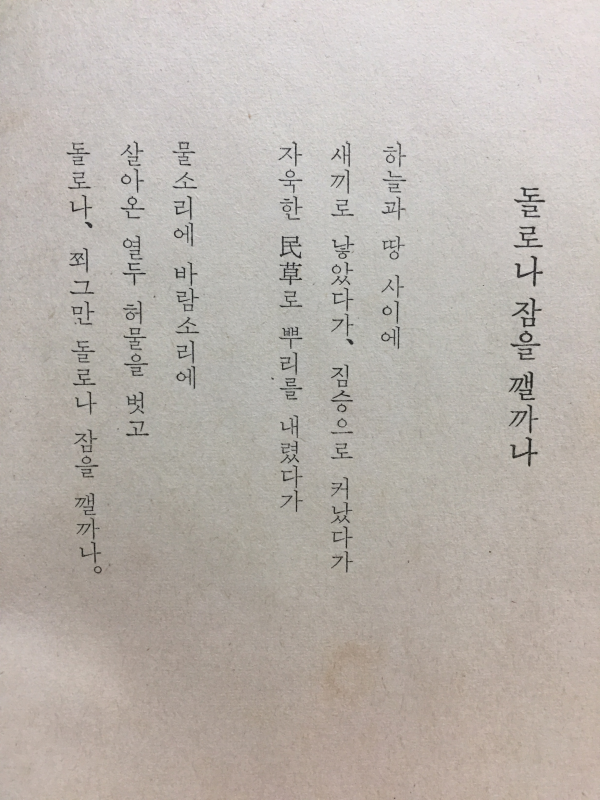 돌로나 잠을 깰까나
하늘과 땅 사이에
새끼로 낳았다가、짐승으로 커났다가
자욱한 民草로 뿌리를 내렸다가
물소리에 바람소리에
살아온 열두 허물을 벗고
돌로나、쬐그만 돌로나 잠을 깰까나。